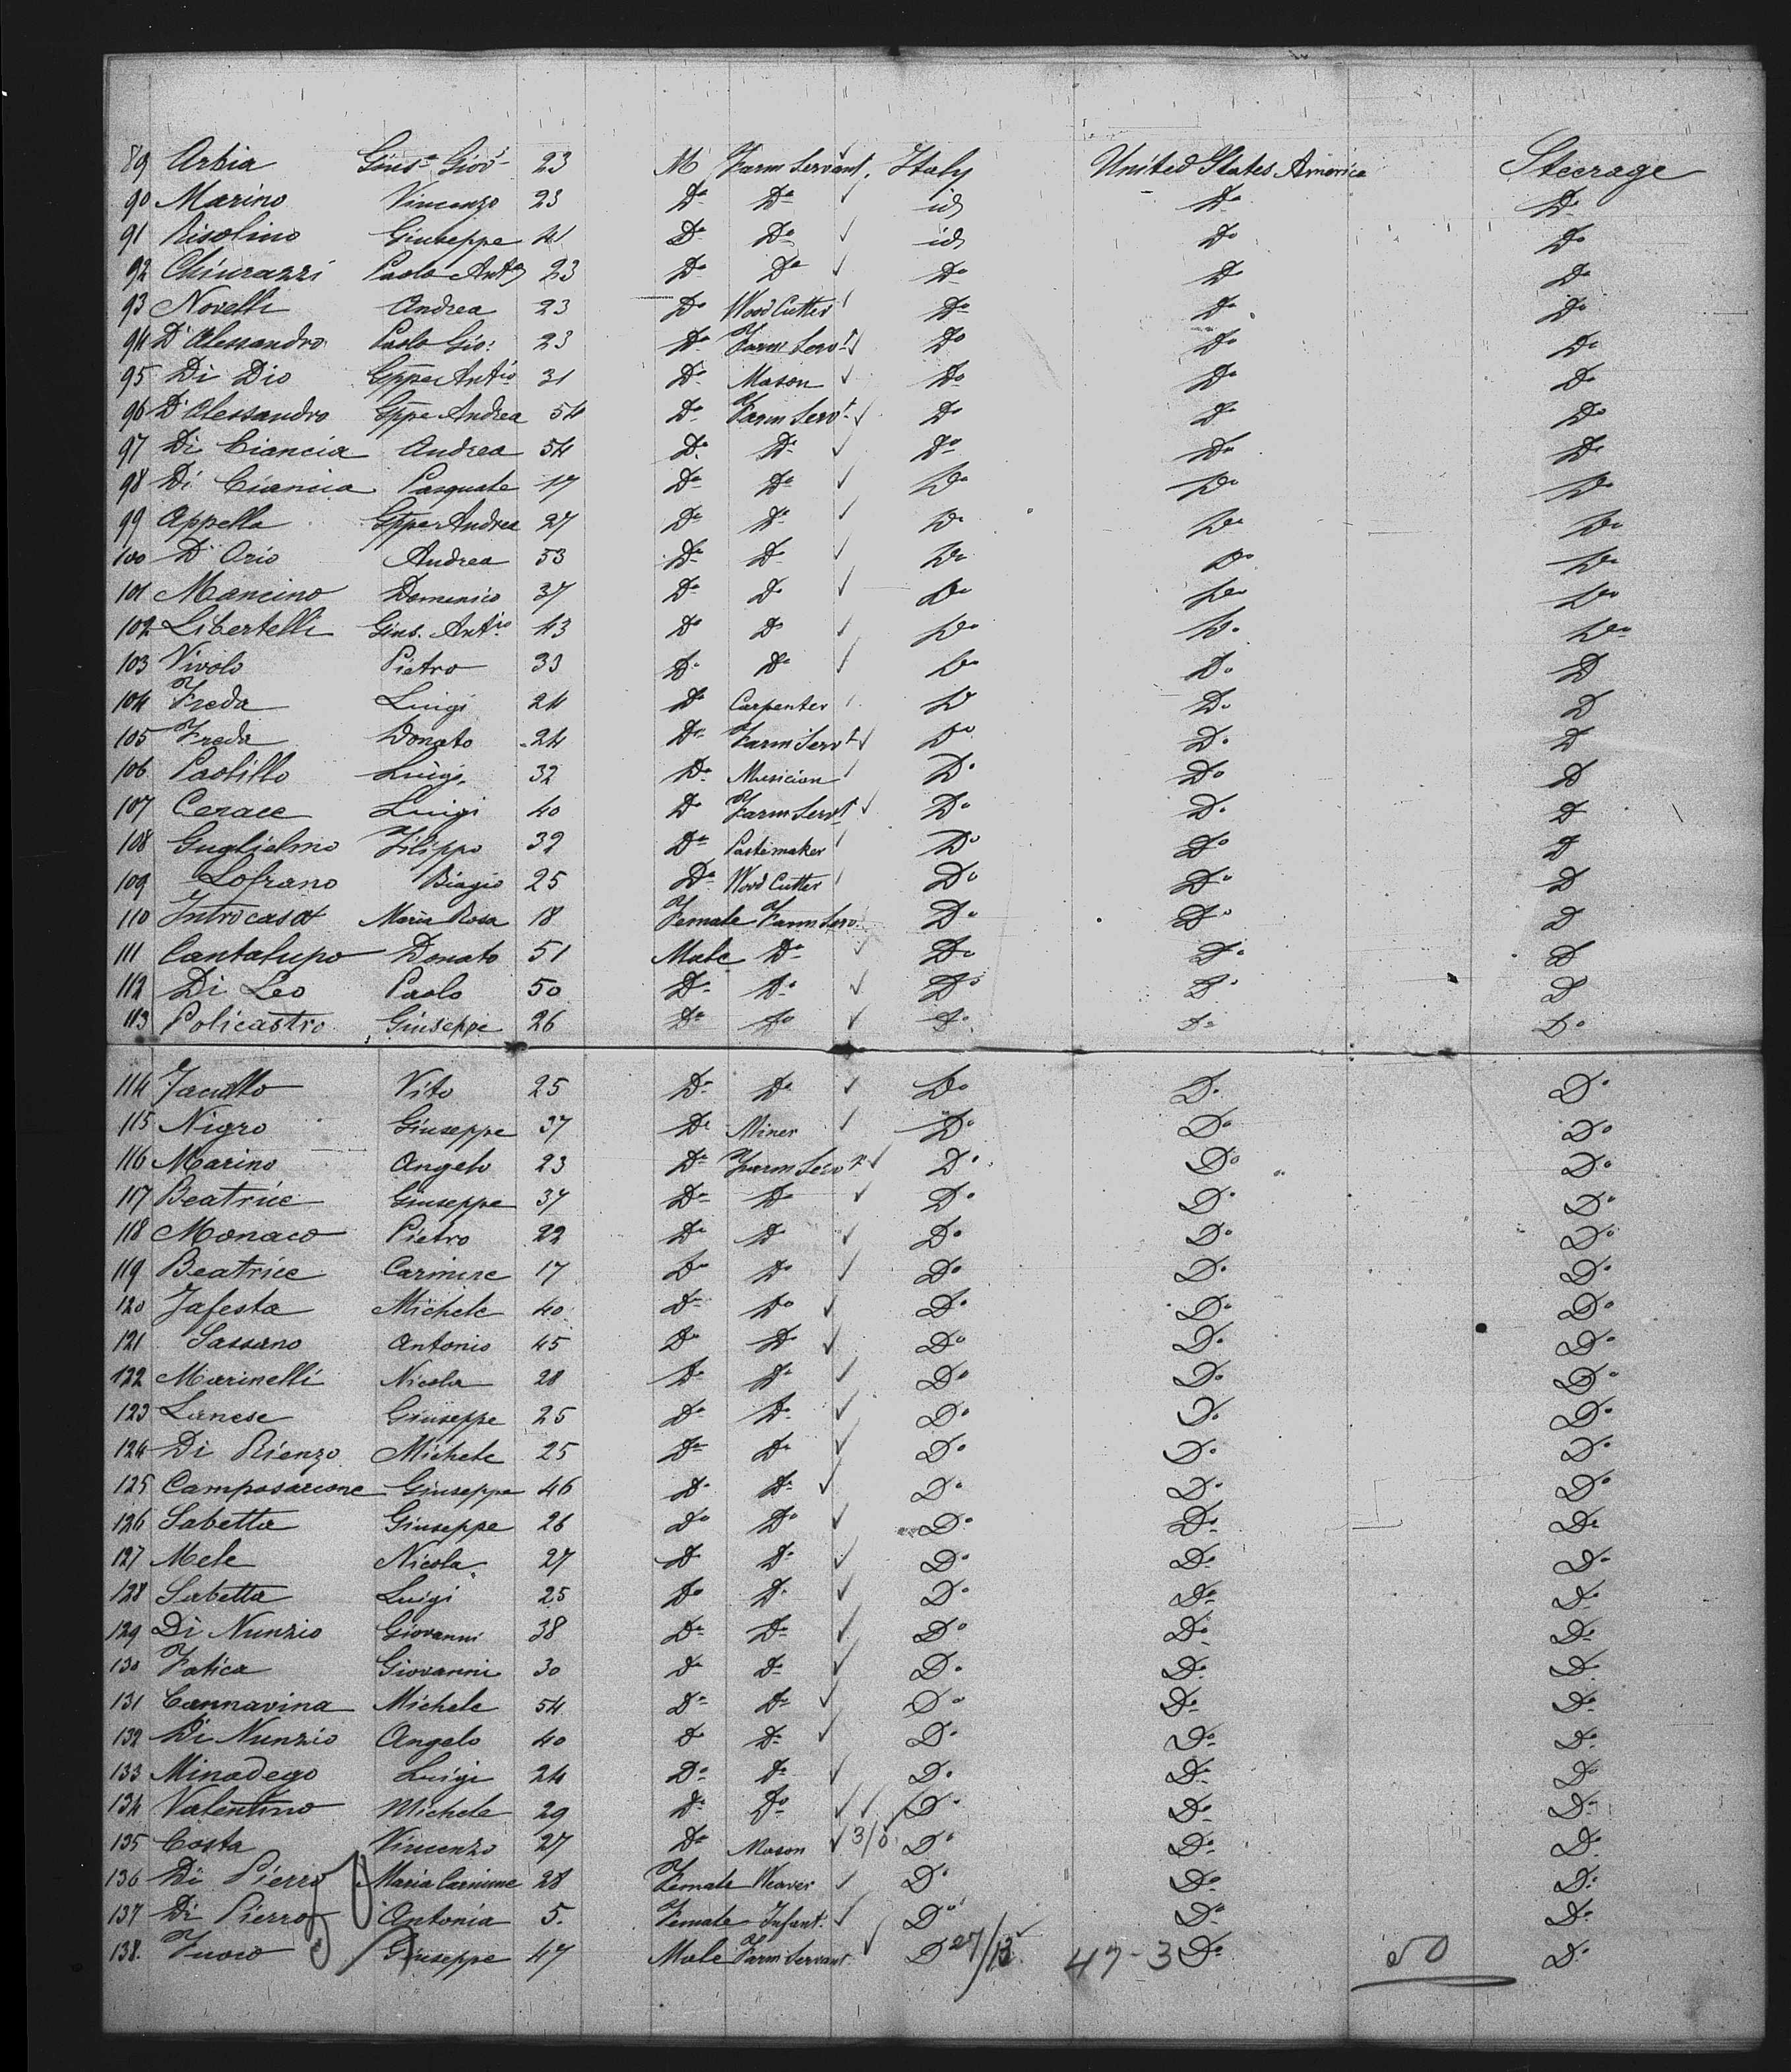 89 Arbia Gius.e Giov.i 23 M Farm Servant, Italy United States America Steerage
90 Marino Vincenzo 23 Do Do ✓ id Do Do
91 Risolino Giuseppe 41 Do Do ✓ id Do Do
92 Chiurazzi Paolo Anto 23 Do Do ✓ Do Do Do
93 Novelli Andrea 23 Do Wood Cutter Do Do Do
94 D'Alessandro Paolo Gio: 23 Do Farm Servt ✓ Do Do Do
95 Di Dio Gppe Antio 31 Do Mason ✓ Do Do Do
96 D'Alessandro Gppe Andrea 54 Do Farm Servt ✓ Do Do Do
97 Di Ciancia Andrea 54 Do Do ✓ Do Do Do
98 Di Ciancia Pasquale 17 Do Do ✓ Do Do Do
99 Appella Gppe Andrea 27 Do Do ✓ Do Do Do
100 D'Orio Andrea 53 Do Do ✓ Do Do Do
101 Mancino Domenico 37 Do Do ✓ Do Do Do
102 Libertelli Gius. Antio 43 Do Do ✓ Do Do Do
103 Vivolo Pietro 33 Do Do ✓ Do Do D
104 Freda Luigi 24 Do Carpenter D Do D
105 Freda Donato 24 Do Farm Servt ✓ Do Do D
106 Paolillo Luigi 32 Do Musician Do Do D
107 Cerace Luigi 40 Do Farm Servt ✓ Do Do D
108 Guglielmo Filippo 32 Do Pastemaker Do Do D
109 Lofrano Biagio 25 Do Wood Cutter Do Do D
110 Introcaso Maria Rosa 18 Female Farm Serv. Do Do D
111 Cantalupo Donato 51 Male Do ✓ Do Do D
112 Di Leo Paolo 50 Do Do ✓ Do Do D
113 Policastro Giuseppe 26 Do Do ✓ Do Do Do
114 Vito 25 Do Do ✓ Do Do Do
115 Nigro Giuseppe 37 Do Miner ✓ Do Do Do
116 Marino Angelo 23 Do Farm Servt ✓ Do Do Do
117 Beatrice Giuseppe 37 Do Do ✓ Do Do Do
118 Monaco Pietro 22 Do Do ✓ Do Do Do
119 Beatrice Carmine 17 Do Do ✓ Do Do Do
120 Jafesta Michele 40 Do Do ✓ Do Do Do
121 Sassano Antonio 45 Do Do ✓ Do Do Do
122 Marinelli Nicola 28 Do Do ✓ Do Do Do
123 Lanese Giuseppe 25 Do Do ✓ Do Do Do
124 Di Rienzo Michele 25 Do Do ✓ Do Do Do
125 Camposarcone Giuseppe 46 Do Do ✓ Do Do Do
126 Sabetta Giuseppe 26 Do Do ✓ Do Do Do
127 Mele Nicola 27 Do Do ✓ Do Do Do
128 Sabetta Luigi 25 Do Do ✓ Do Do Do
129 Di Nunzio Giovanni 38 Do Do ✓ Do Do Do
130 Fatica Giovanni 30 Do Do ✓ Do Do Do
131 Cannavina Michele 54 Do Do ✓ Do Do Do
132 Di Nunzio Angelo 40 Do Do ✓ Do Do Do
133 Minadego Luigi 24 Do Do ✓ Do Do Do
134 Valentino Michele 29 Do Do ✓ ✓ Do Do Do
135 Costa Vincenzo 27 Do Mason ✓ 3/0 Do Do Do
136 Di Pierro Maria Carmine 28 Female Weaver ✓ Do Do Do
137 Di Pierro Antonia 5. Female Infant. ✓ Do Do Do
138. Fuoco Giuseppe 47 Male Farm Servant ✓ D 27/13 47-3 Do 50 Do